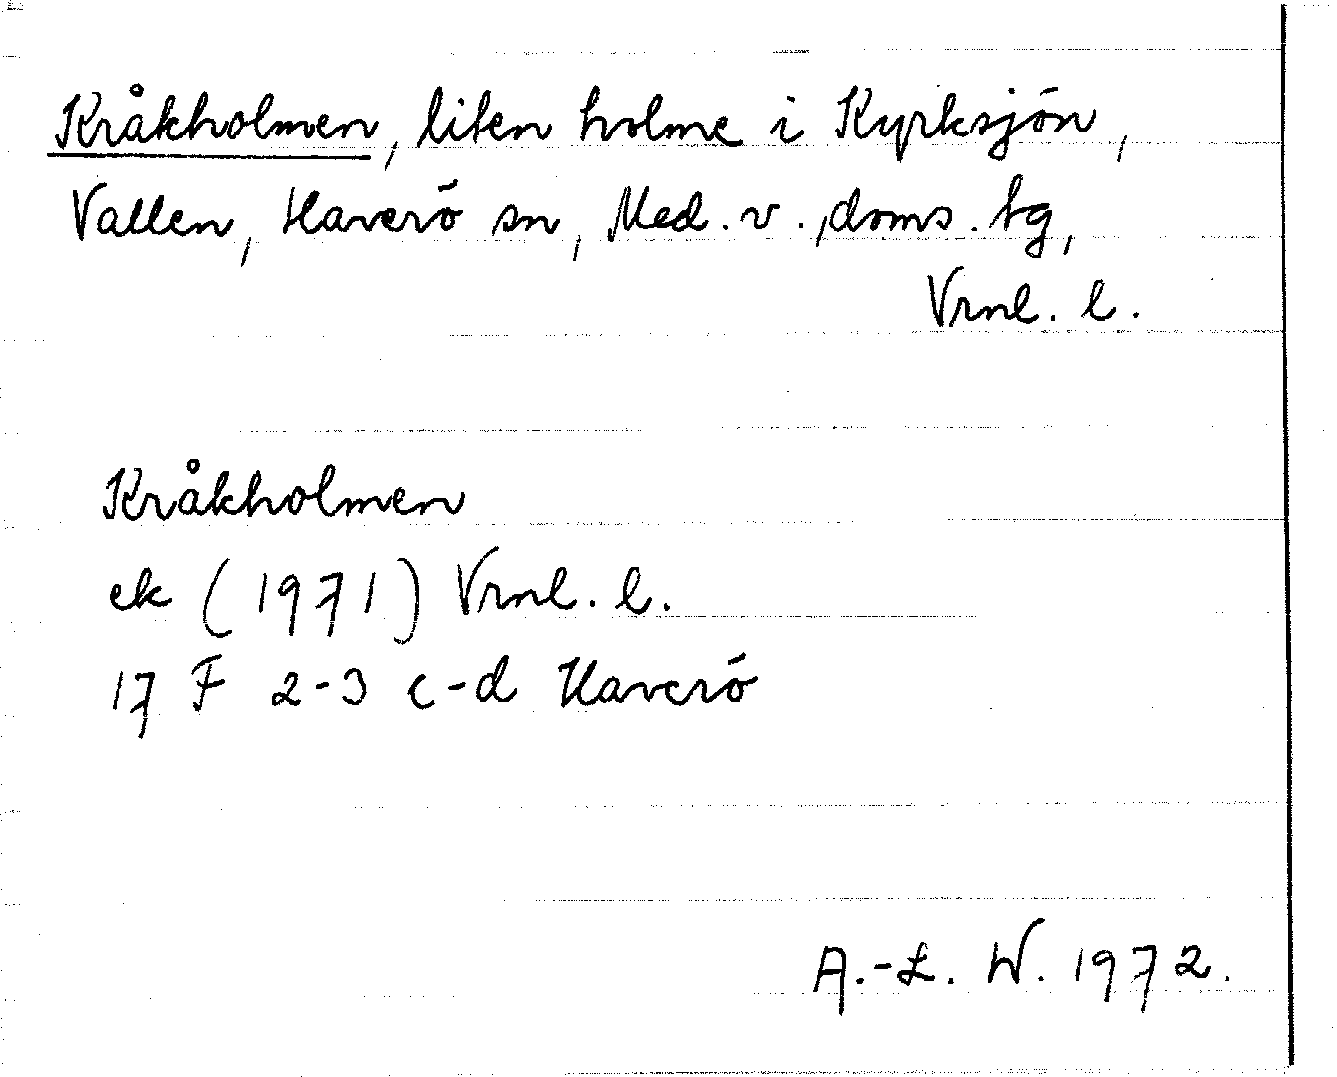 Kråkholmen, liten holme i Kyrksjön,
Vallen, Haverö sn, Med. v., doms. tg,
Vrnl. l.
Kråkholmen
ek (1971) Vrnl. l.
17 F 2-3 c-d Haverö
A.-L. W. 1972.